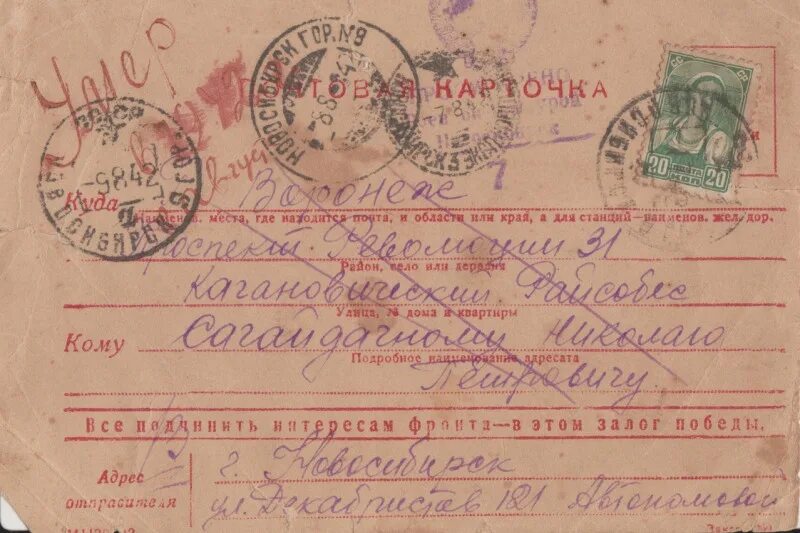 Умер
ПОЧТОВАЯ КАРТОЧКА
НОВОСИБИРСК ГОР. №9
СССР
5 8 42
НОВОСИБИРСК
СССР
20 ПОЧТА КОП. 20
7
Куда Воронеж
Наименов. места, где находится почта, и области или край, а для станций—наименов. жел./дор.
Проспект Революции 31
Район, село или деревня
Кагановический Райсобес
Улица, № дома и квартиры
Кому Сагайдачному Николаю
Подробное наименование адресата
Петровичу.
Все подчинить интересам фронта—в этом залог победы.
Адрес отправителя
г. Новосибирск
ул. Декабристов 121 Автономовой